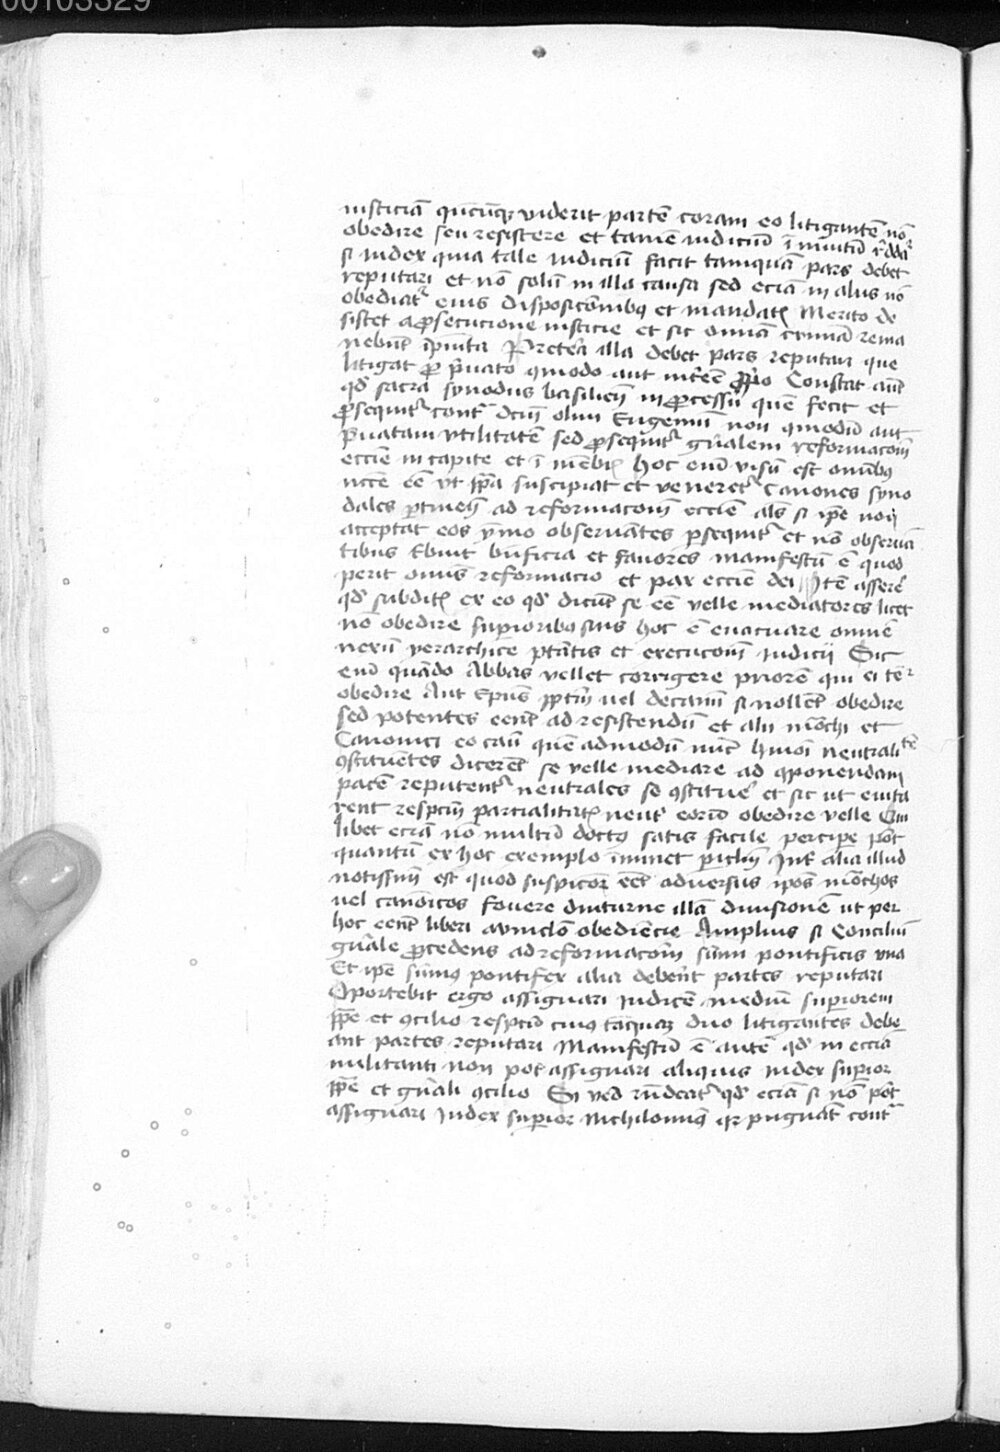 00103329
iusticiā qn̄cūqȝ viderit partē coram eo litigantē nō
obedire seu resistere et tamē iudiciū ī inuitū r̄ddat᷑
si iudex quia tale iudiciū facit tamquā pars debet
reputari et nō solū in illa causa sed eciā in aliis nō
obediat᷑ eius disposicōnibus et mandatis Merito de
sistet a ꝓsecucione iusticie et sic omnia crimina rema
nebūt īpunita Preterea illa debet pars reputari que
litigat ꝓ p̄uato cōmodo aut int̄esse ꝓprio Constat aūt
qd̄ sacra synodus basilien̄ in ꝓcessu quē fecit et
ꝓsequit᷑ cont̄ dcm̄ olim Eugeniū non cōmodū aut
p̄uatam vtilitatē sed ꝓsequit᷑ gn̄alem reformacōm
ecclie in capite et ī mēbris hoc enī visū est omībus
nccē eē vt ip̄a suscipiat et veneret᷑ canones syno
dales ptinen̄ ad reformacōm ecclie als̄ si ip̄e non
acceptat eos ymo obseruātes ꝑsequit᷑ et nō obserua
tibus tribuit bn̄ficia et fauores manifestū ē quod
perit omnis reformacio et pax ecclie dei Itē asserē
qd̄ subditis ex eo qd̄ dicūt se eē velle mediatores licet
nō obedire superioribus suis hoc ē euacuare omnē
nexū yerarchice ptātis et execucōm iudicii Sic
enī quando Abbas vellet corrigere priorē qui ei tēt᷑
obedire Aut Ep̄us p̄ptm̄ vel decanū si nollēt obedire
sed potentes eēnt ad resistendū et alii mōchi et
Canonici eo casu quē admodū nūc hmōi neutralitē
9stituētes dicerēt se velle mediare ad 9ponendam
pacē reputent᷑ neutrales se 9stituē et sic ut euita
rent respcm̄ parcialitatis neut᷑ eorū obedire velle Cui
libet eciā nō multū docto satis facile percipe pōt
quantū ex hoc exemplo īminet picłm Int᷑ alia illud
notissimū est quod suspicor eēt aduersus ip̄os mōchos
vel canonicos fouere diuturne illā diuisionē ut per
hoc eēnt liberi a vinclo obediencie Amplius si Conciliū
gn̄ale ꝓcedens ad reformacōm sūmi pontificis vna
Et ip̄e sūmus pontifex alia debent partes reputari
Oportebit ergo assignari iudicē mediū superiorem
pp̄e et 9cilio respcū cuius tāquaȝ duo litigantes debe
ant partes reputari Manifestū ē autē qd̄ in ecclia
militanti non pot᷑ assignari aliquis iudex superior
pp̄e et gn̄ali 9cilio Si vero rn̄deat᷑ qd̄ eciā si nō pōt
assignari iudex superior nichilominus qȝ pugnāt cont̄